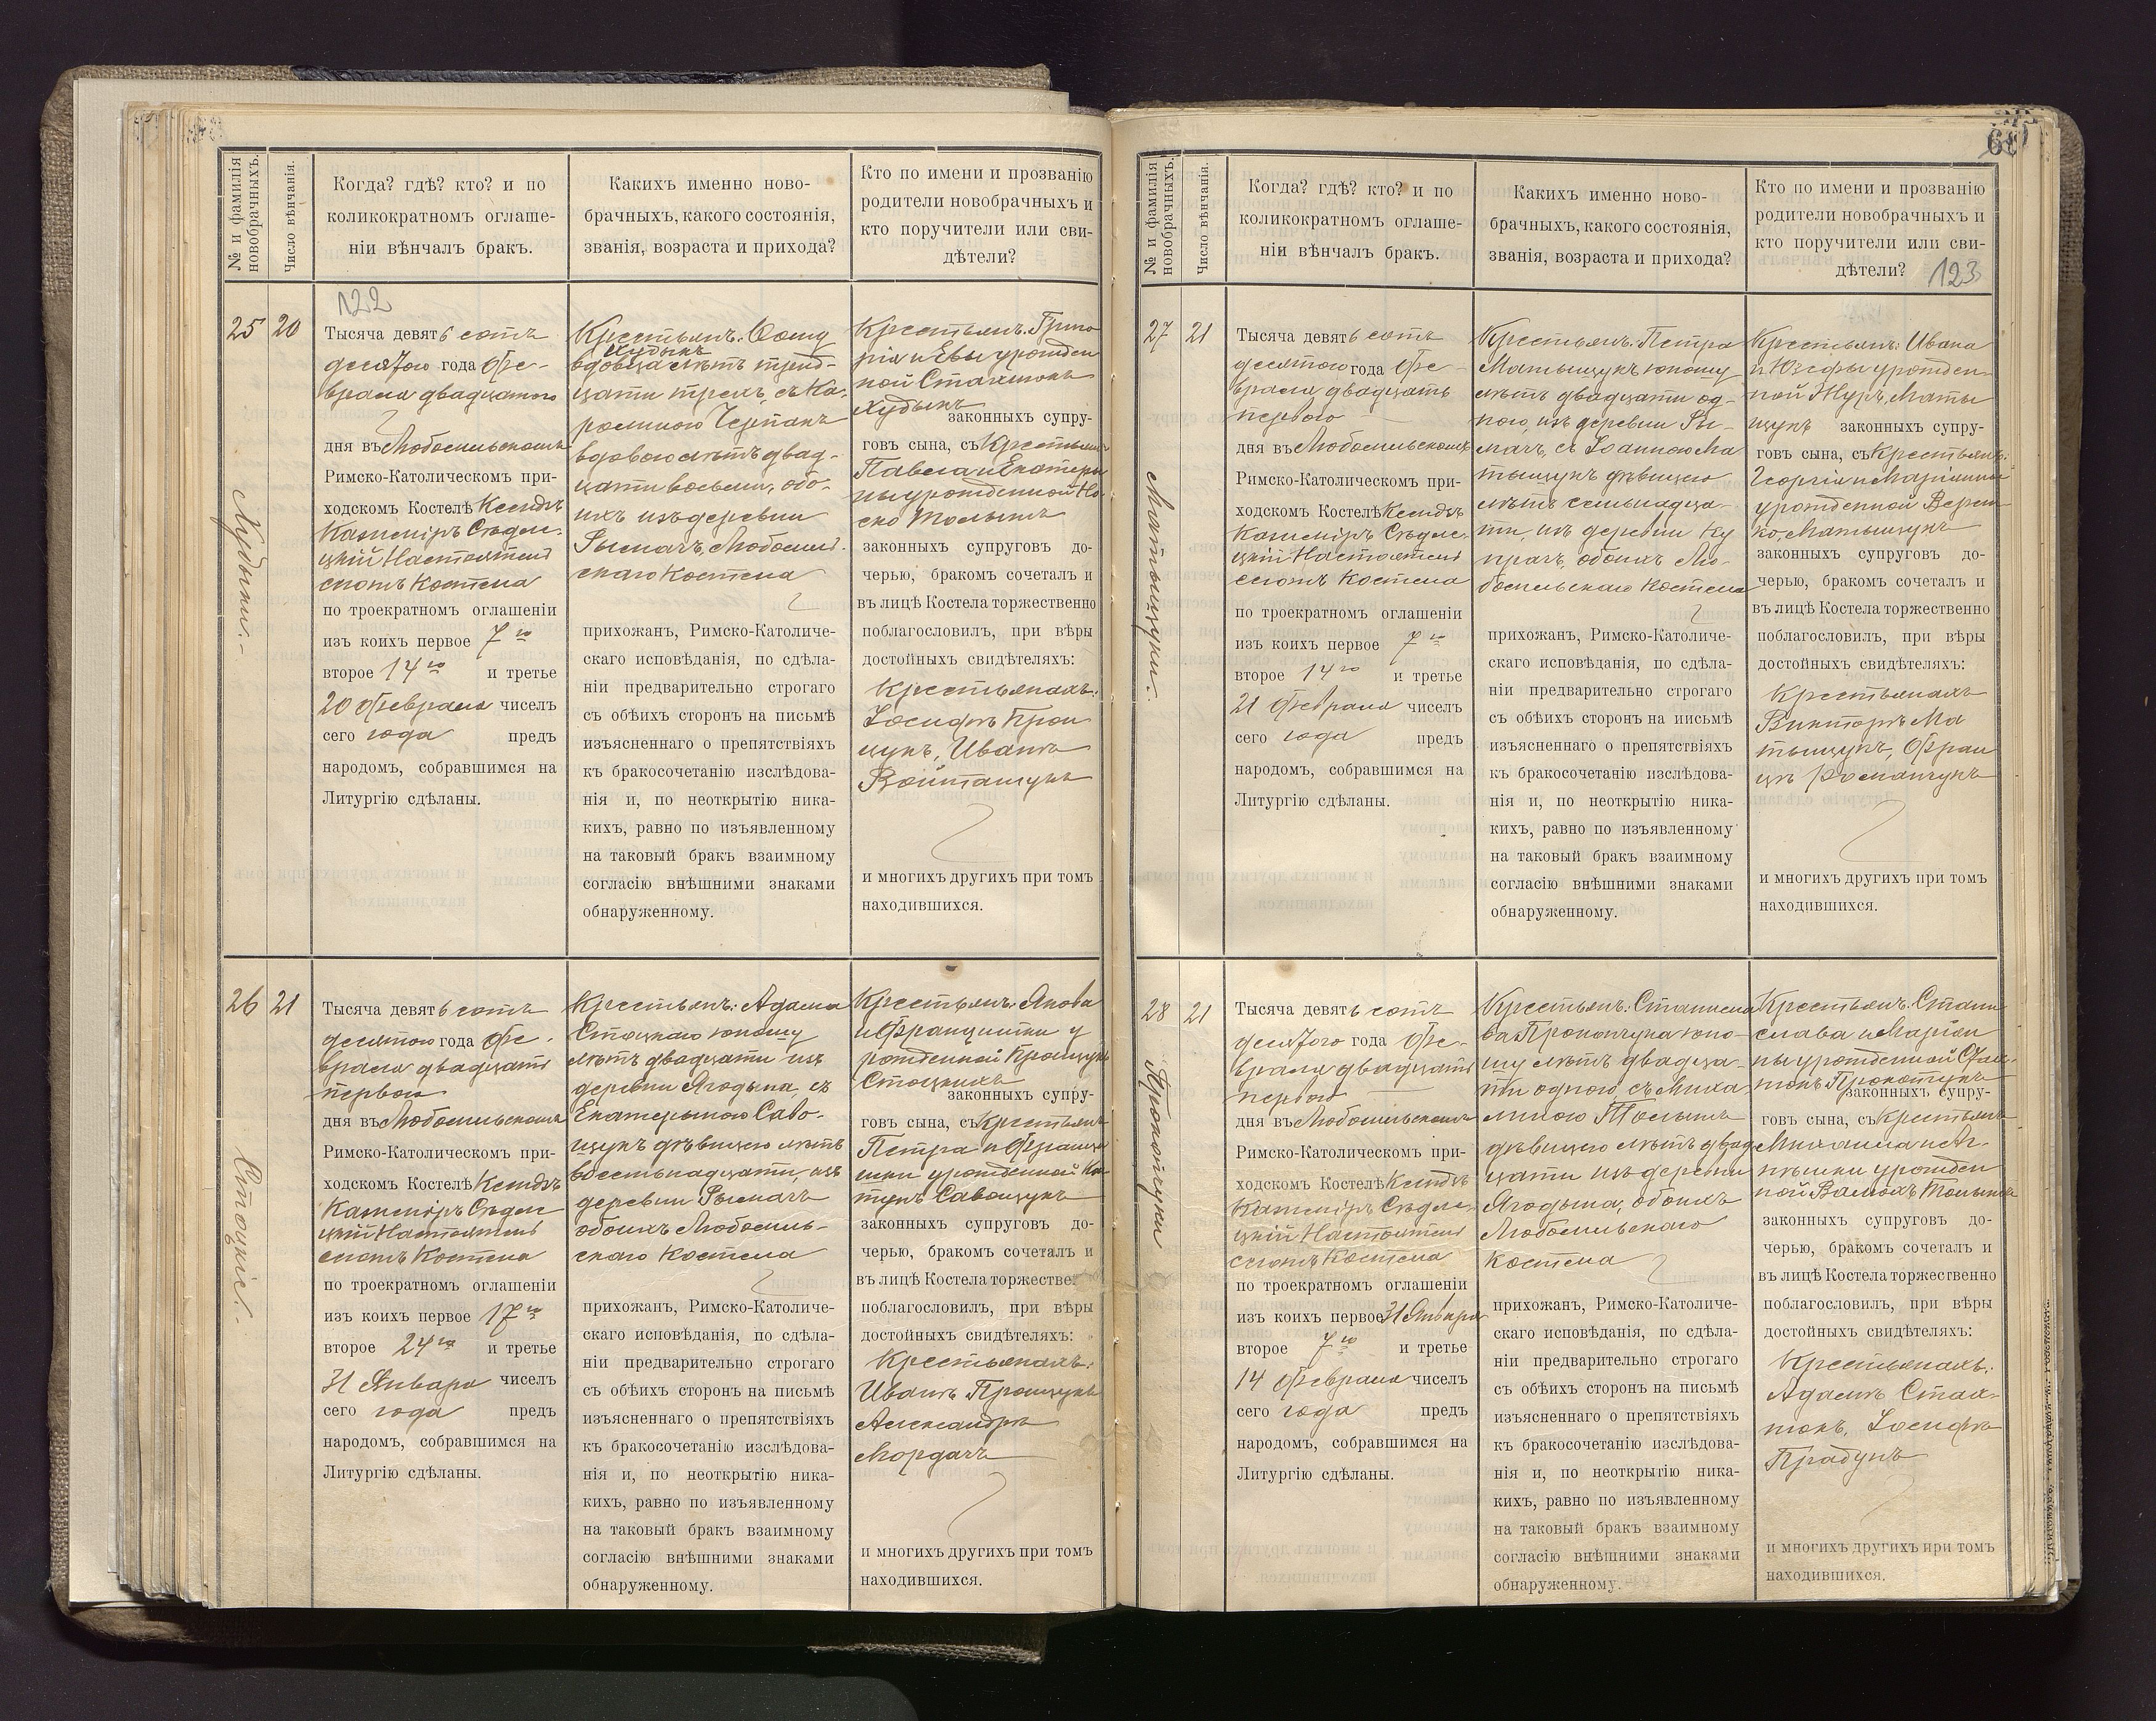 № и фамилія новобрачныхъ.
Число вѣнчанія.
Когда? гдѣ? кто? и по
коликократномъ оглаше-
ніи вѣнчалъ бракъ.
Какихъ именно ново-
брачныхъ, какого состоянія,
званія, возраста и прихода?
Кто по имени и прозванію
родители новобрачныхъ и
кто поручители или сви-
дѣтели?
122
25
20
Худыки.
Тысяча девятьсотъ
десятого года Фе-
враля двадцатого
дня въ Любомльскомъ
Римско-Католическомъ при-
ходскомъ Костелѣ Ксендзъ
Казиміръ Сѣдле-
цкій Настоятель
сего Костела
по троекратномъ оглашеніи
изъ коихъ первое 7го
второе 14го и третье
20 Февраля чиселъ
сего года предъ
народомъ, собравшимся на
Литургію сдѣланы.
Крестьянъ:
Худыкъ
вдовца лѣтъ трид-
цати трехъ, съ Ка-
ролиною Черпакъ
вдовою лѣтъ двад-
цати восьми, обо-
ихъ изъ деревни
Рымачъ, Любомль-
скаго Костела
прихожанъ, Римско-Католиче-
скаго исповѣданія, по сдѣла-
ніи предварительно строгаго
съ обѣихъ сторонъ на письмѣ
изъясненнаго о препятствіяхъ
къ бракосочетанію изслѣдова-
нія и, по неоткрытію ника-
кихъ, равно по изъявленному
на таковый бракъ взаимному
согласію внѣшними знаками
обнаруженному.
Крестьянъ: Григо
рія и Евы урожден
ной Стахнюкъ
Худыкъ
законныхъ супру-
говъ сына, съ Крестьянъ
Павла и Екатери
ны урожденной
Толымъ
законныхъ супруговъ до-
черью, бракомъ сочеталъ и
въ лицѣ Костела торжественно
поблагословилъ, при вѣры
достойныхъ свидѣтеляхъ:
Крестьянахъ:
Іосифъ
Иванъ
Войтащукъ
и многихъ другихъ при томъ
находившихся.
26
21
Стоцкіе.
Тысяча девятьсотъ
десятого года Фе-
враля двадцать
первого
дня въ Любомльскомъ
Римско-Католическомъ при-
ходскомъ Костелѣ Ксендзъ
Казиміръ Сѣдле
цкій Настоятель
сего Костела
по троекратномъ оглашеніи
изъ коихъ первое 17го
второе 24го и третье
31 Января чиселъ
сего года предъ
народомъ, собравшимся на
Литургію сдѣланы.
Крестьянъ: Адама
Стоцкаго юношу
лѣтъ двадцати изъ
деревни Ягодына, съ
Екатериною Саво-
щукъ дѣвицею лѣтъ
восемнадцати, изъ
деревни Рымачъ
обоихъ Любомль-
скаго Костела
прихожанъ, Римско-Католиче-
скаго исповѣданія, по сдѣла-
ніи предварительно строгаго
съ обѣихъ сторонъ на письмѣ
изъясненнаго о препятствіяхъ
къ бракосочетанію изслѣдова-
нія и, по неоткрытію ника-
кихъ, равно по изъявленному
на таковый бракъ взаимному
согласію внѣшними знаками
обнаруженному.
Крестьянъ: Якова
и Францишки у
рожденной Прищукъ
Стоцкихъ
законныхъ супру-
говъ сына, съ Крестьянъ
Петра и Франци
шки урожденной
Савощукъ
законныхъ супруговъ до-
черью, бракомъ сочеталъ и
въ лицѣ Костела торжестве
поблагословилъ, при вѣры
достойныхъ свидѣтеляхъ:
Крестьянахъ:
Иванъ Прищукъ
Александръ
Мордачъ
и многихъ другихъ при томъ
находившихся.
69
№ и фамилія новобрачныхъ.
Число вѣнчанія.
Когда? гдѣ? кто? и по
коликократномъ оглаше-
ніи вѣнчалъ бракъ.
Какихъ именно ново-
брачныхъ, какого состоянія,
званія, возраста и прихода?
Кто по имени и прозванію
родители новобрачныхъ и
кто поручители или сви-
дѣтели?
123
27
21
Матыщуки.
Тысяча девятьсотъ
десятого года Фе-
враля двадцать
первого
дня въ Любомльскомъ
Римско-Католическомъ при-
ходскомъ Костелѣ Ксендзъ
Казиміръ Сѣдле-
цкій Настоятель
сего Костела
по троекратномъ оглашеніи
изъ коихъ первое 7го
второе 14го и третье
21 Февраля чиселъ
сего года предъ
народомъ, собравшимся на
Литургію сдѣланы.
Крестьянъ: Петра
Матыщукъ юношу
лѣтъ двадцати од-
ного, изъ деревни Ры-
мачъ, съ Іоанною Ма
тыщукъ дѣвицею
лѣтъ семнадца-
ти, изъ деревни Ку
прачъ, обоихъ Лю-
бомльскаго Костела
прихожанъ, Римско-Католиче-
скаго исповѣданія, по сдѣла-
ніи предварительно строгаго
съ обѣихъ сторонъ на письмѣ
изъясненнаго о препятствіяхъ
къ бракосочетанію изслѣдова-
нія и, по неоткрытію ника-
кихъ, равно по изъявленному
на таковый бракъ взаимному
согласію внѣшними знаками
обнаруженному.
Крестьянъ: Ивана
и Юзефы урожден-
ной Жукъ, Маты
щукъ законныхъ супру-
говъ сына, съ Крестьянъ:
Георгія и Маріанны
урожденной
Матыщукъ
законныхъ супруговъ до-
черью, бракомъ сочеталъ и
въ лицѣ Костела торжественно
поблагословилъ, при вѣры
достойныхъ свидѣтеляхъ:
Крестьянахъ
Викторъ Ма
тыщукъ, Фран
цъ Романчукъ
и многихъ другихъ при томъ
находившихся.
28
21
Прокопчуки
Тысяча девятьсотъ
десятого года Фе-
враля двадцать
первого
дня въ Любомльскомъ
Римско-Католическомъ при-
ходскомъ Костелѣ Ксендзъ
Казиміръ Сѣдле-
цкій Настоятель
сего Костела
по троекратномъ оглашеніи
изъ коихъ первое 31 Января
второе 7го и третье
14 Февраля чиселъ
сего года предъ
народомъ, собравшимся на
Литургію сдѣланы.
Крестьянъ: Станисла
ва Прокопчука юно-
шу лѣтъ двадца-
ти одного, съ Миха
линою Толымъ
дѣвицею лѣтъ двад
цати изъ деревни
Ягодына, обоихъ
Любомльскаго
Костела
прихожанъ, Римско-Католиче-
скаго исповѣданія, по сдѣла-
ніи предварительно строгаго
съ обѣихъ сторонъ на письмѣ
изъясненнаго о препятствіяхъ
къ бракосочетанію изслѣдова-
нія и, по неоткрытію ника-
кихъ, равно по изъявленному
на таковый бракъ взаимному
согласію внѣшними знаками
обнаруженному.
Крестьянъ: Стани
слава и Маріан
ны урожденной Стах-
нюкъ Прокопчукъ
законныхъ супру-
говъ сына, съ Крестьянъ
Михаила и Аг-
нѣшки урожден
ной Толымъ
законныхъ супруговъ до-
черью, бракомъ сочеталъ и
въ лицѣ Костела торжественно
поблагословилъ, при вѣры
достойныхъ свидѣтеляхъ:
Крестьянахъ:
Адамъ Стах-
нюкъ, Іосифъ
Прадунъ
и многихъ другихъ при томъ
находившихся.